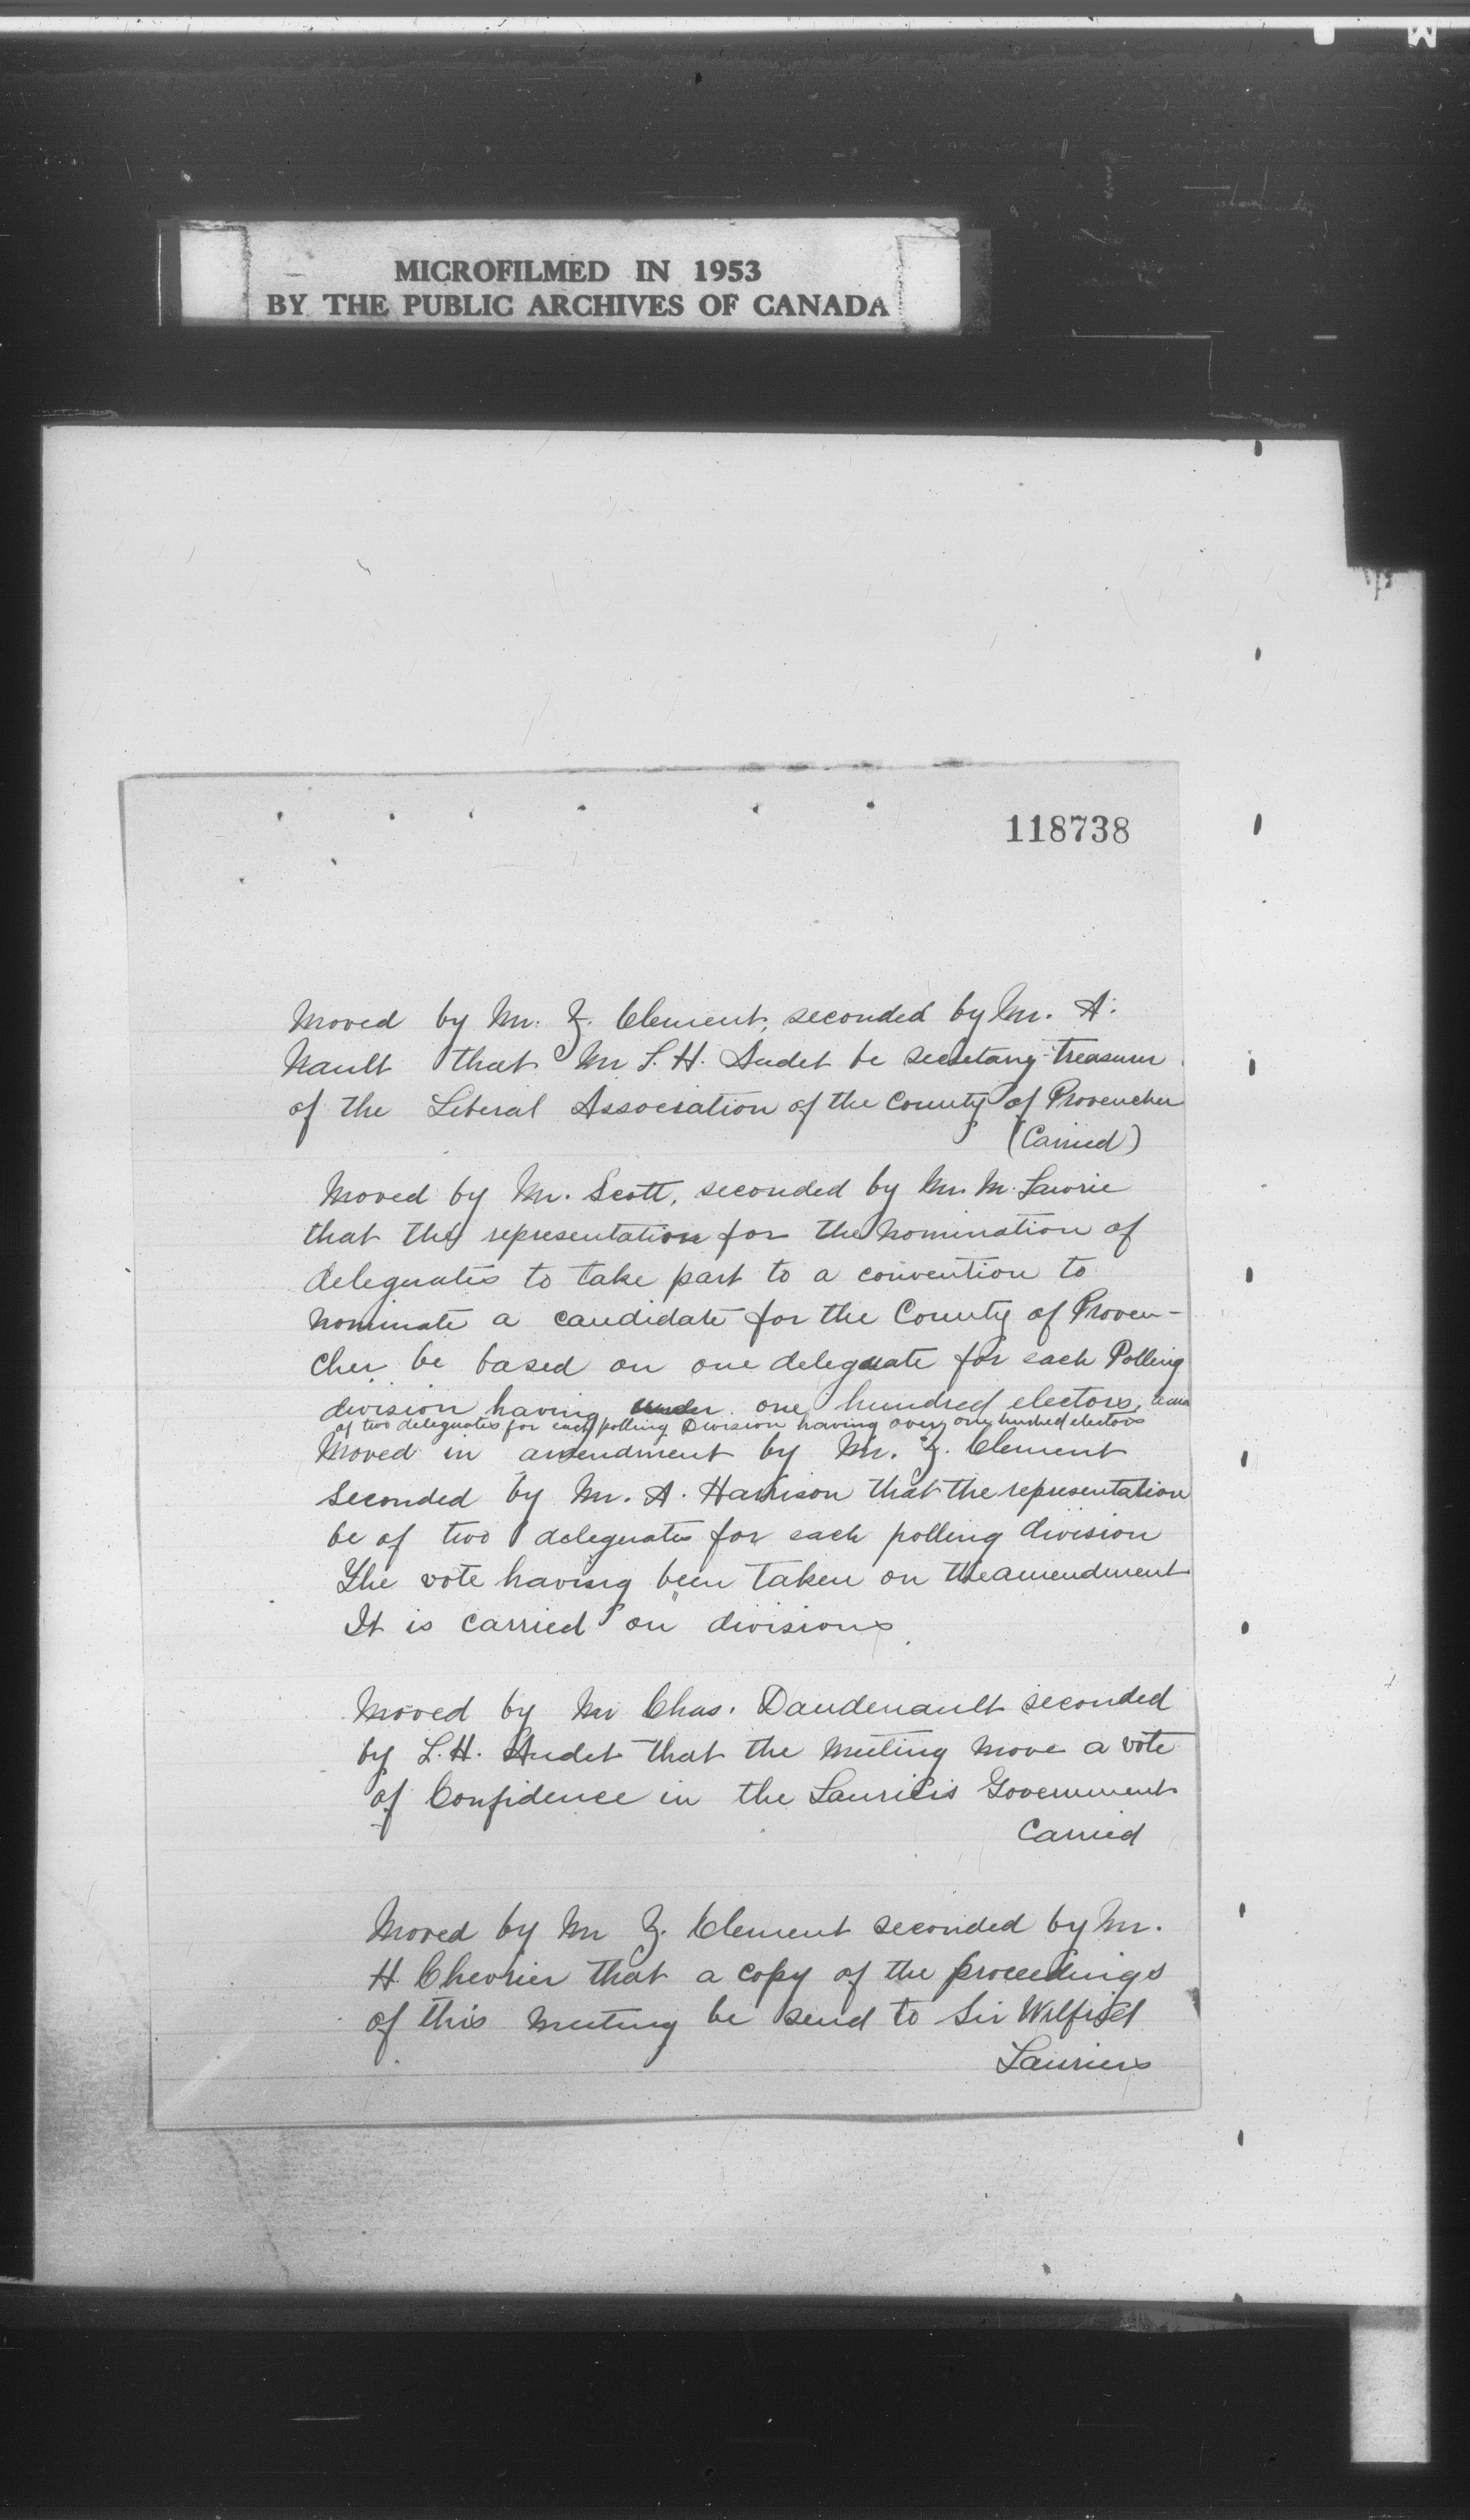 MICROFILMED IN 1953
BY THE PUBLIC ARCHIVES OF CANADA
118738
Moved by Mr. Z. Clement, seconded by Mr. A.
Nault that Mr L. H. Audet be secretary-treasurer
of the Liberal Association of the County of Provencher
(Carried)
Moved by Mr. Scott, seconded by Mr. M. Lawrie
that the representation for the nomination of
deleguates to take part to a convention to
nominate a candidate for the County of Proven-
cher be based on one deleguate for each Polling
division having under one hundred electors,
of two deleguates for each polling Division having over one hundred electors
Moved in amendment by Mr. Z. Clement
seconded by Mr. A. Harrison that the representation
be of two deleguates for each polling division
The vote having been taken on the amendment
It is carried on divisions
Moved by Mr Chas. Dandenault seconded
by L. H. Audet that the meeting move a vote
of Confidence in the Government
Carried
Moved by Mr Z. Clement seconded by Mr.
H. Chevrier that a copy of the proceedings
of this meeting be send to Sir Wilfrid
Laurier